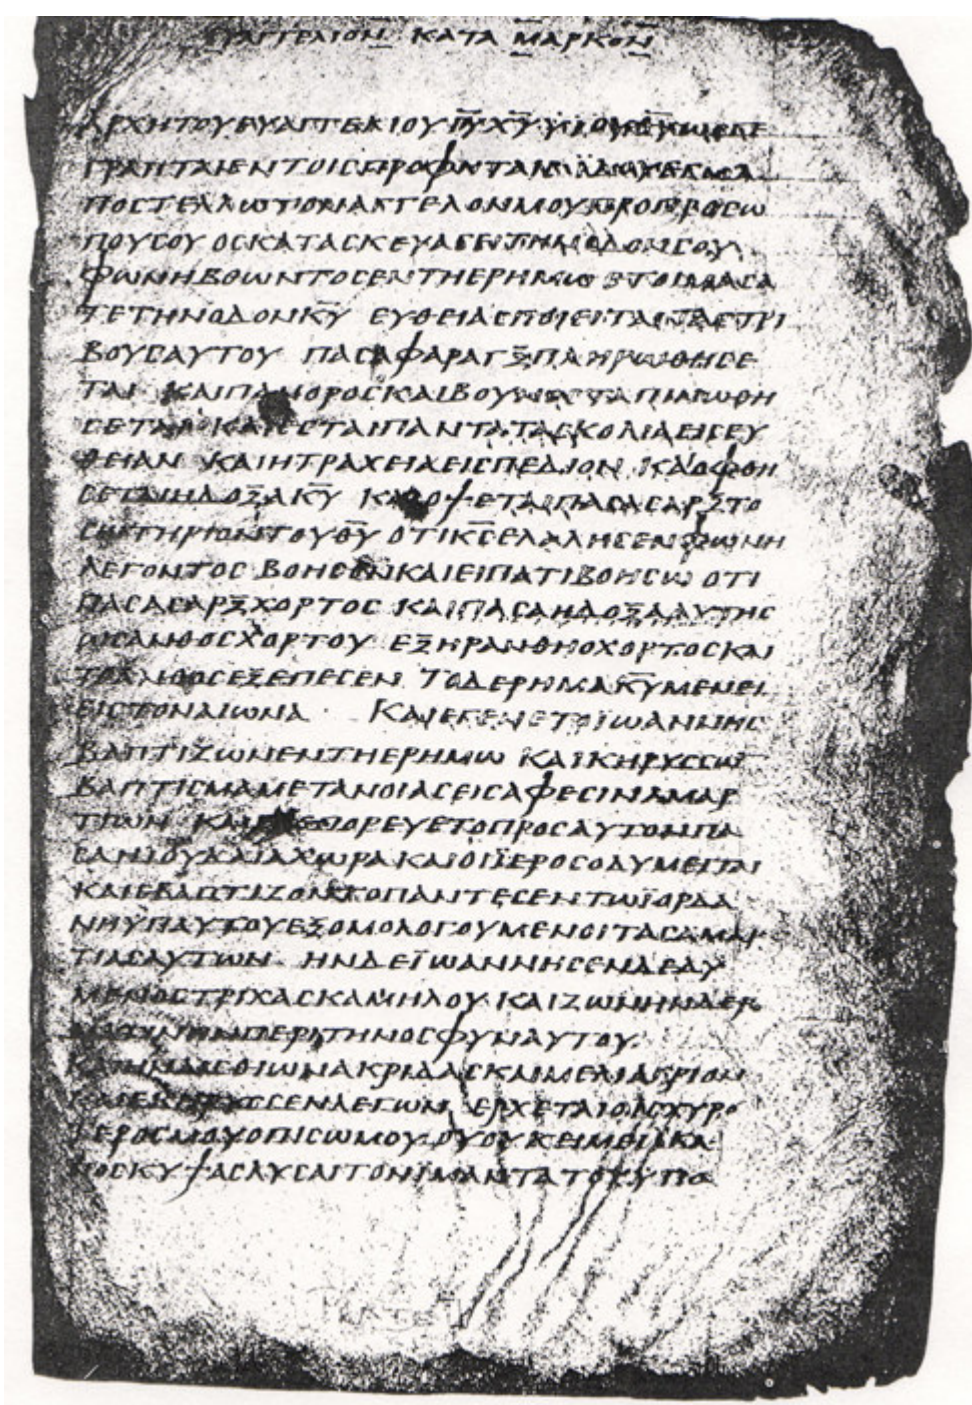 ΕΥΑΓΓΕΛΙΟΝ ΚΑΤΑ ΜΑΡΚΟΝ
ΑΡΧΗΤΟΥΕΥΑΓΓΕΛΙΟΥΙ̅Υ̅Χ̅Υ̅ΥΙΟΥΘ̅Υ̅ΩϹΓΕ
ΓΡΑΠΤΑΙΕΝΤΟΙϹΠΡΟΦΗΤΑΙϹΙΔΟΥΕΓΩΑ
ΠΟϹΤΕΛΛΩΤΟΝΑΓΓΕΛΟΝΜΟΥΠΡΟΠΡΟϹΩ
ΠΟΥϹΟΥ ΟϹΚΑΤΑϹΚΕΥΑϹΕΙΤΗΝΟΔΟΝϹΟΥ
ΦΩΝΗΒΟΩΝΤΟϹΕΝΤΗΕΡΗΜΩ ΕΤΟΙΜΑϹΑ
ΤΕΤΗΝΟΔΟΝΚ̅Υ̅ ΕΥΘΕΙΑϹΠΟΙΕΙΤΑΙΤΑϹΤΡΙ
ΒΟΥϹΑΥΤΟΥ ΠΑϹΑΦΑΡΑΓΞΠΛΗΡΩΘΗϹΕ
ΤΑΙ ΚΑΙΠΑΝΟΡΟϹΚΑΙΒΟΥΝΟϹΤΑΠΙΝΩΘΗ
ϹΕΤΑΙ ΚΑΙΕϹΤΑΙΠΑΝΤΑΤΑϹΚΟΛΙΑΕΙϹΕΥ
ΘΕΙΑΝ ΚΑΙΗΤΡΑΧΕΙΑΕΙϹΠΕΔΙΟΝ ΚΑΙΟΦΘΗ
ϹΕΤΑΙΗΔΟΞΑΚ̅Υ̅ ΚΑΙΟΨΕΤΑΙΠΑϹΑϹΑΡΞΤΟ
ϹΩΤΗΡΙΟΝΤΟΥΘ̅Υ̅ ΟΤΙΚ̅Ϲ̅ΕΛΑΛΗϹΕΝΦΩΝΗ
ΛΕΓΟΝΤΟϹ ΒΟΗϹΟΝΚΑΙΕΙΠΑΤΙΒΟΗϹΩ ΟΤΙ
ΠΑϹΑϹΑΡΞΧΟΡΤΟϹ ΚΑΙΠΑϹΑΗΔΟΞΑΑΥΤΗϹ
ΩϹΑΝΘΟϹΧΟΡΤΟΥ ΕΞΗΡΑΝΘΗΟΧΟΡΤΟϹΚΑΙ
ΤΟΑΝΘΟϹΕΞΕΠΕϹΕΝ ΤΟΔΕΡΗΜΑΚ̅Υ̅ΜΕΝΕΙ
ΕΙϹΤΟΝΑΙΩΝΑ ΚΑΙΕΓΕΝΕΤΟΪΩΑΝΝΗϹ
ΒΑΠΤΙΖΩΝΕΝΤΗΕΡΗΜΩ ΚΑΙΚΗΡΥϹϹΩ̅
ΒΑΠΤΙϹΜΑΜΕΤΑΝΟΙΑϹΕΙϹΑΦΕϹΙΝΑΜΑΡ
ΤΙΩΝ ΚΑΙΕΞΕΠΟΡΕΥΕΤΟΠΡΟϹΑΥΤΟΝΠΑ
ϹΑΗΙΟΥΔΑΙΑΧΩΡΑΚΑΙΟΙΪΕΡΟϹΟΛΥΜΕΙΤΑΙ
ΚΑΙΕΒΑΠΤΙΖΟΝΤΟΠΑΝΤΕϹΕΝΤΩΪΟΡΔΑ
ΝΗΫΠΑΥΤΟΥΕΞΟΜΟΛΟΓΟΥΜΕΝΟΙΤΑϹΑΜΑΡ
ΤΙΑϹΑΥΤΩΝ ΗΝΔΕΪΩΑΝΝΗϹΕΝΔΕΔΥ
ΜΕΝΟϹΤΡΙΧΑϹΚΑΜΗΛΟΥ ΚΑΙΖΩΝΗΝΔΕΡ
ΜΑΤΙΝΗΝΠΕΡΙΤΗΝΟϹΦΥΝΑΥΤΟΥ
ΚΑΙΗΝΑΙϹΘΙΩΝΑΚΡΙΔΑϹΚΑΙΜΕΛΙΑΓΡΙΟΝ
ΚΑΙΕΚΗΡΥϹϹΕΝΛΕΓΩΝ ΕΡΧΕΤΑΙΟΙϹΧΥΡΟ
ΤΕΡΟϹΜΟΥΟΠΙϹΩΜΟΥ ΟΥΟΥΚΕΙΜΕΙΪΚΑ
ΝΟϹΚΥΨΑϹΛΥϹΑΙΤΟΝΪΜΑΝΤΑΤΟΥΥΠΟ